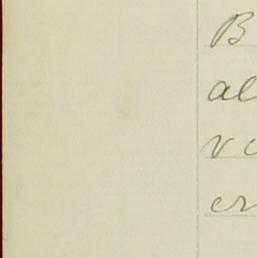 B
al
vc
er